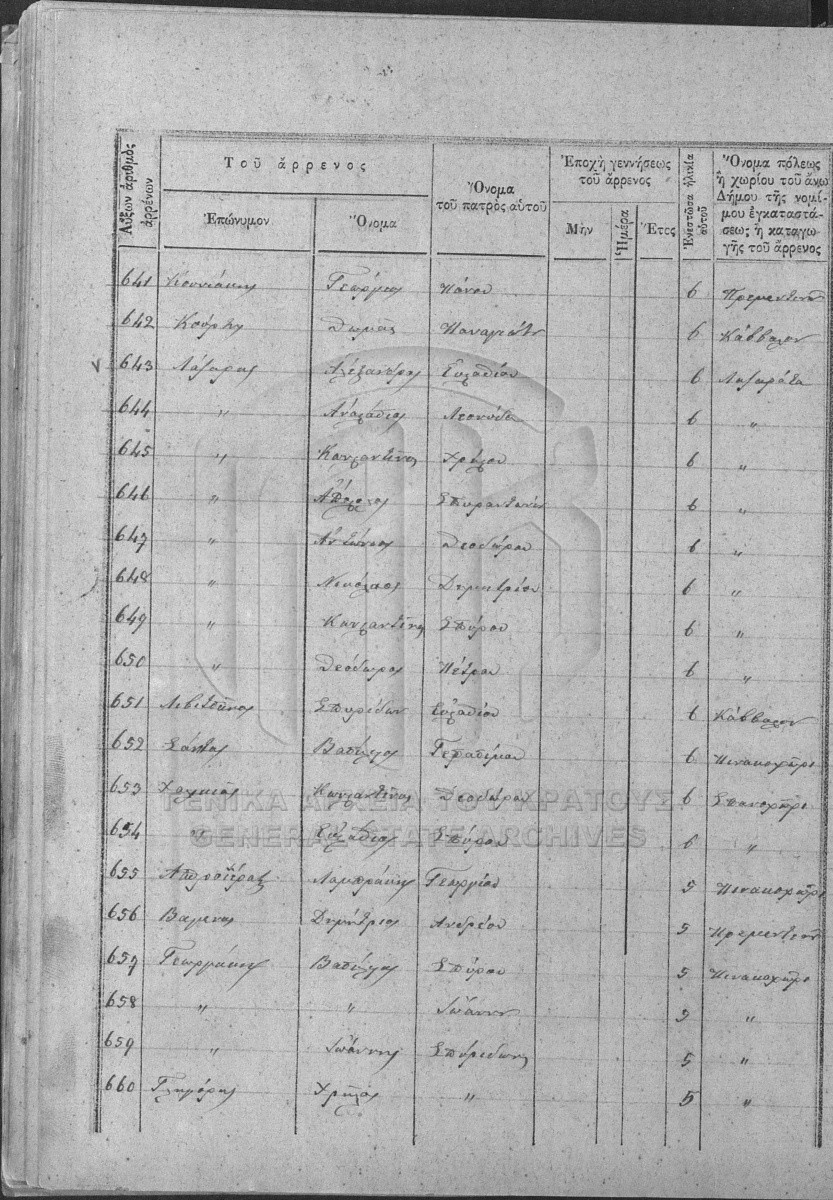 Αὔξων ἀριθμὸς ἀρρένων
Τοῦ ἄρρενος
Ἐπώνυμον
Ὄνομα
Ὄνομα τοῦ πατρὸς αὐτοῦ
Ἐποχὴ γεννήσεως τοῦ ἄρρενος
Μὴν
Ἡμέρα
Ἔτος
Ἐνεστῶσα ἡλικία αὐτοῦ
Ὄνομα πόλεως
ἢ χωρίου τοῦ ἄνω
Δήμου τῆς νομί-
μου ἐγκαταστά-
σεως; ἢ καταγω-
γῆς τοῦ ἄρρενος
641 Γεώργιος Πάνου 6
642 Κούρτης Θωμᾶς Παναγιώτη 6 Κάββαλον
643 Λάζαρης Ἀλέξανδρος Εὐσταθίου 6 Λαζαράτα
644 " Ἀναστάσιος Λεονίδα 6 "
645 " Κωνσταντῖνος Χρήστου 6 "
646 " 6 "
647 " Ἀντώνιος Θεοδώρου 6 "
648 " Νικόλαος Δημητρίου 6 "
649 " Κωνσταντῖνος Σπύρου 6 "
650 " Θεόδωρος Πέτρου 6 "
651 Σπυρίδων Εὐσταθίου 6 Κάββαλον
652 Σάντας Βασίλειος Γερασίμου 6 Πινακοχῶρι
653 Κωνσταντῖνος Θεοδώρου 6 Σπανοχῶρι
654 " Εὐστάθιος Σπύρου 6 "
655 Γεωργίου 5 Πινακοχῶρι
656 Δημήτριος Ἀνδρέου 5
657 Γεωργάκης Βασίλειος Σπύρου 5 Πινακοχῶρι
658 " " Ἰωάννη 5 "
659 " Ἰωάννης Σπυρίδωνος 5 "
660 Γληγόρης Χρῆστος " 5 "
ΓΕΝΙΚΑ ΑΡΧΕΙΑ ΤΟΥ ΚΡΑΤΟΥΣ
GENERAL STATE ARCHIVES